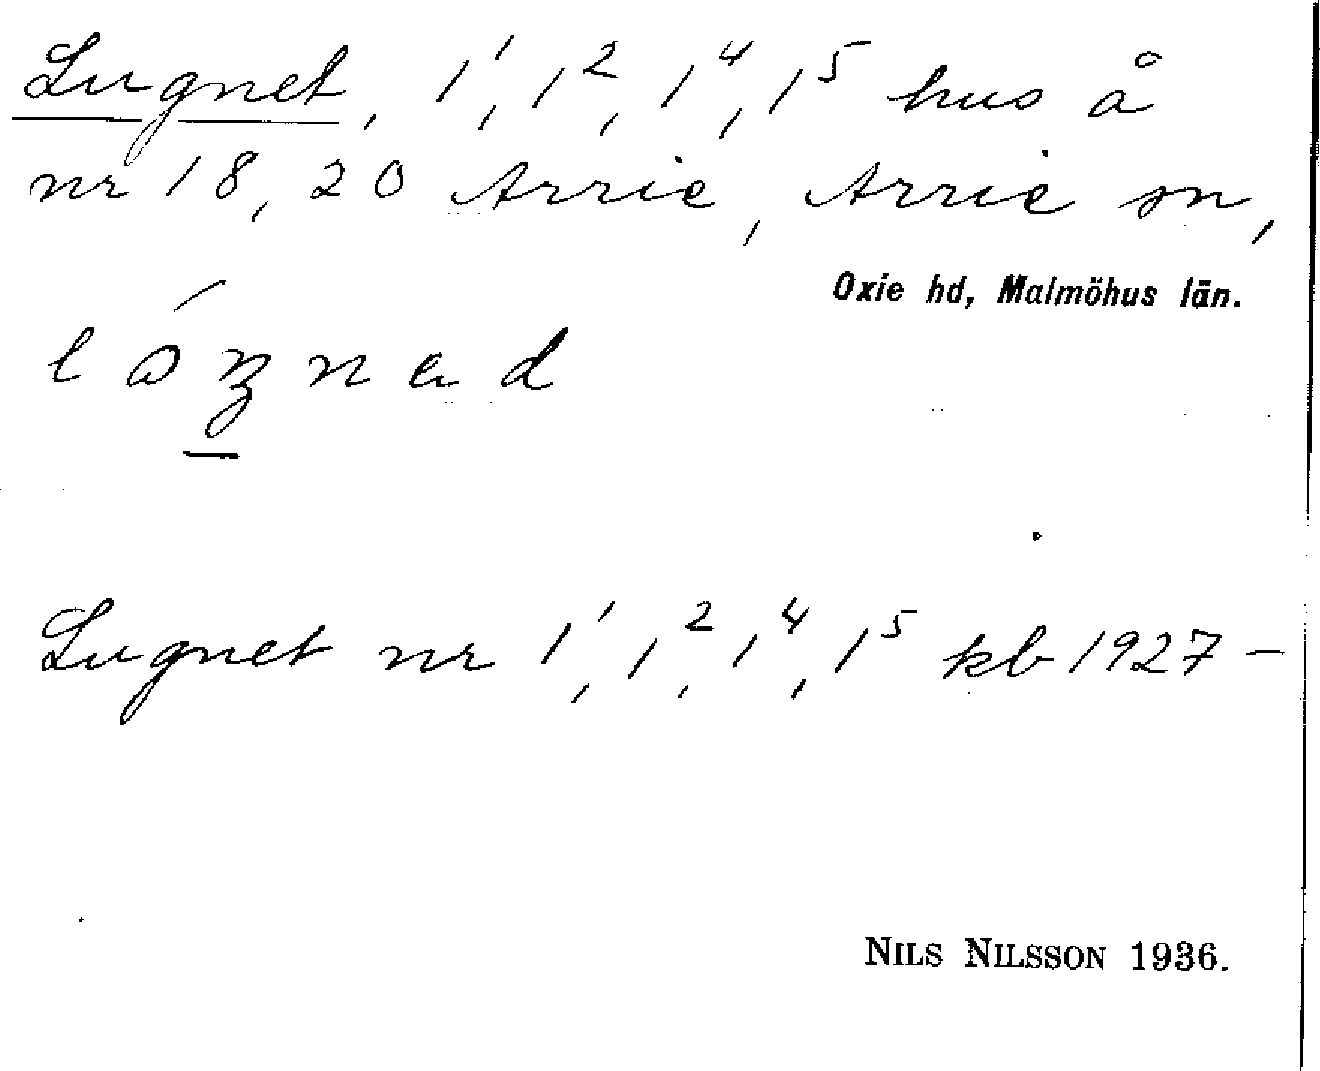 Lugnet, 1¹, 1², 1⁴, 1⁵ hus å
nr 18, 20 Arrie, Arrie sn,
Oxie hd, Malmöhus län.
Lugnet nr 1¹, 1², 1⁴, 1⁵ kb 1927 –
NILS NILSSON 1936.